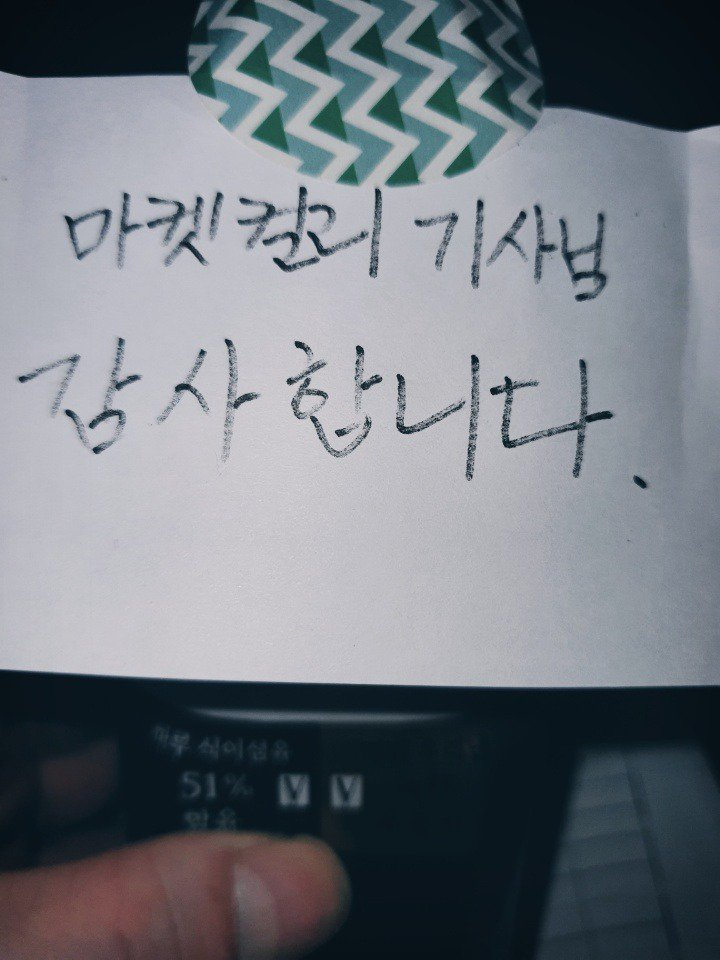 마켓컬리 기사님
감사합니다.
식이섬유
51% V V